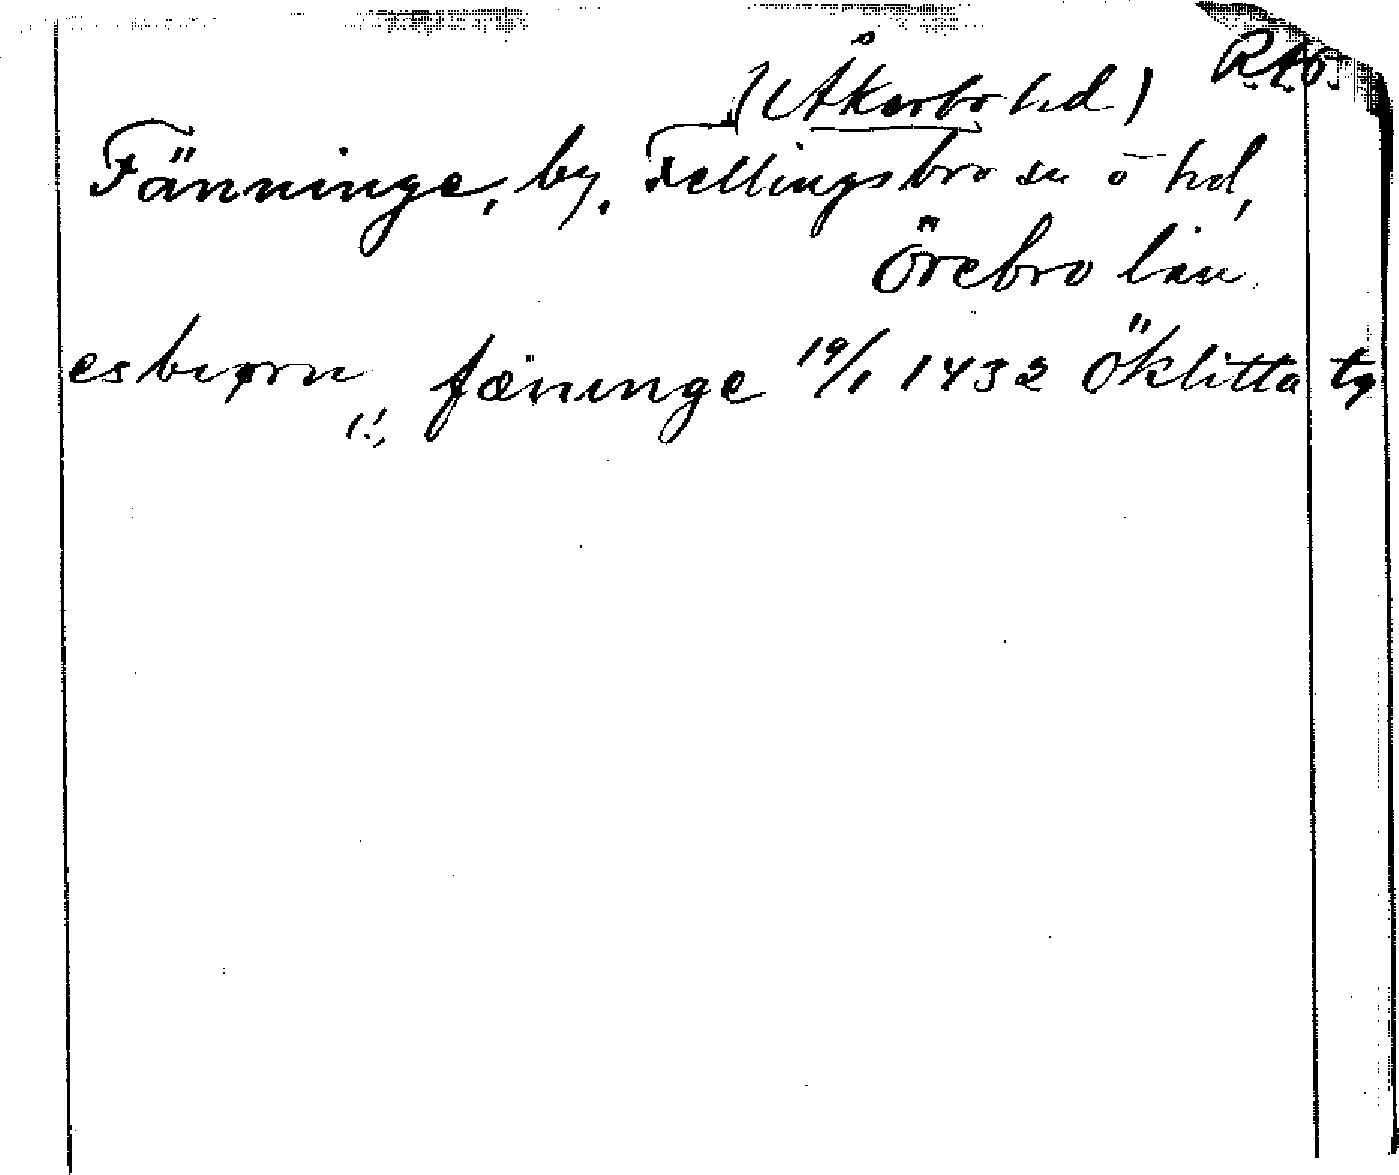 (Åkerbo hd) RAö
Fänninge, by. Fellingsbro sn o hd,
Örebro län.
esbiørn i fæninge 19/1 1432 Öklitta tg
(!)